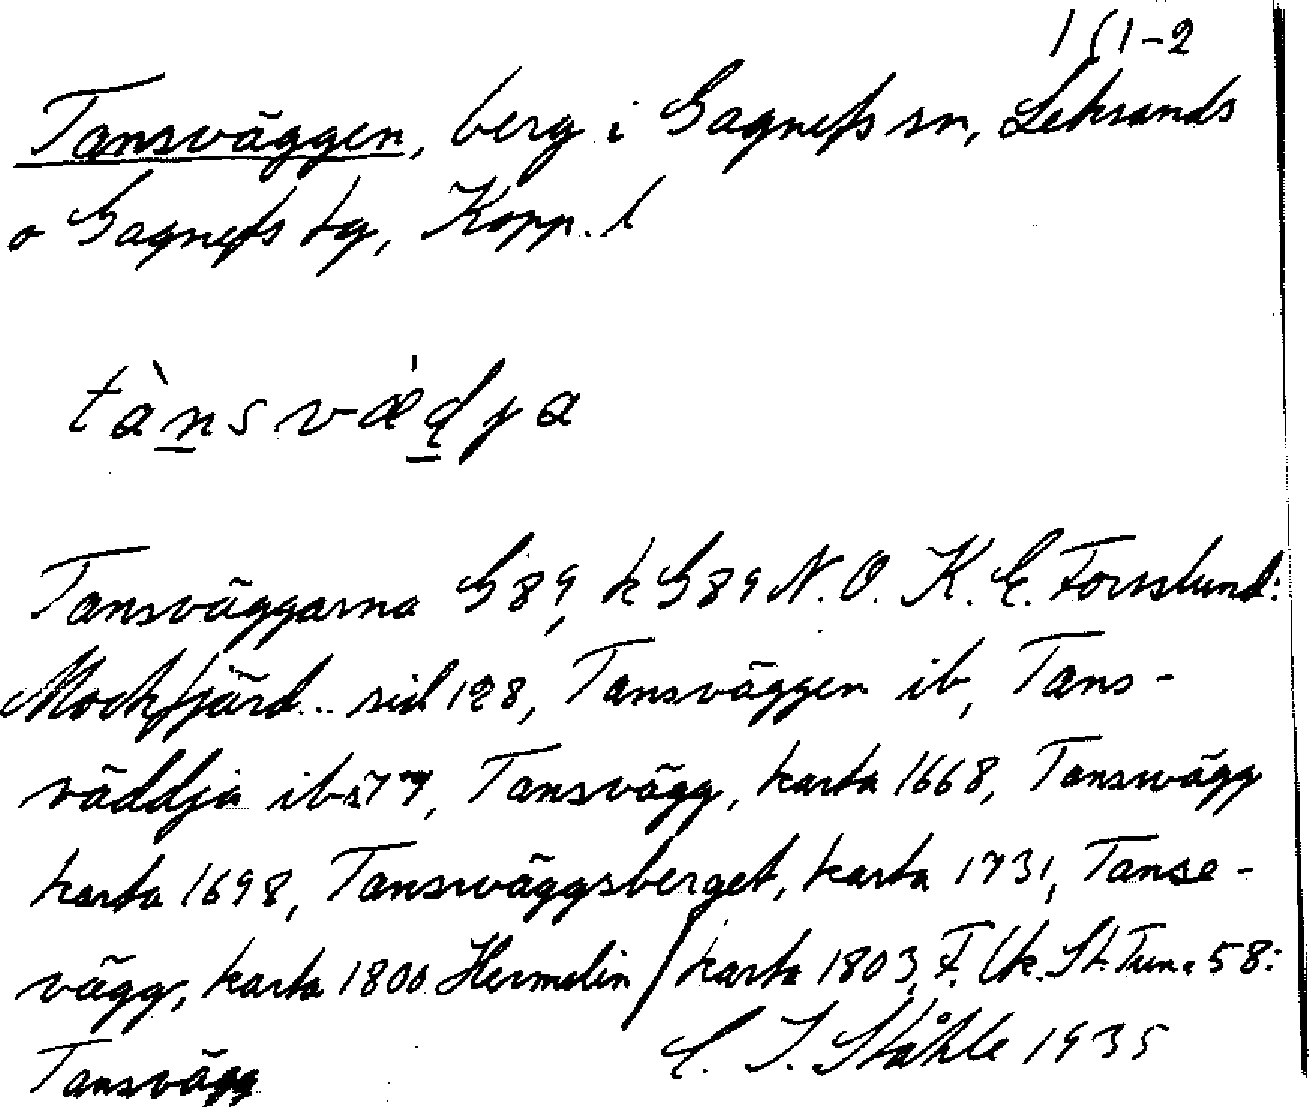 151-2
Tansväggen, berg i Gagnefs sn, Leksands
o Gagnefs tg, Kopp. l
tànsvædja
Tansväggarna G89, k G89 N.O. K. E. Forsslund:
Mockfjärd.. sid 128, Tansväggen ib, Tans-
väddja ib s 77, Tansvägg, karta 1668, Tanswägg
karta 1698, Tanswäggsberget, karta 1731, Tanse-
vägg, karta 1800 Hermelin / karta 1803, F. (k. St. Tun. 58:
Tansvägg
C. I. Ståhle 1935